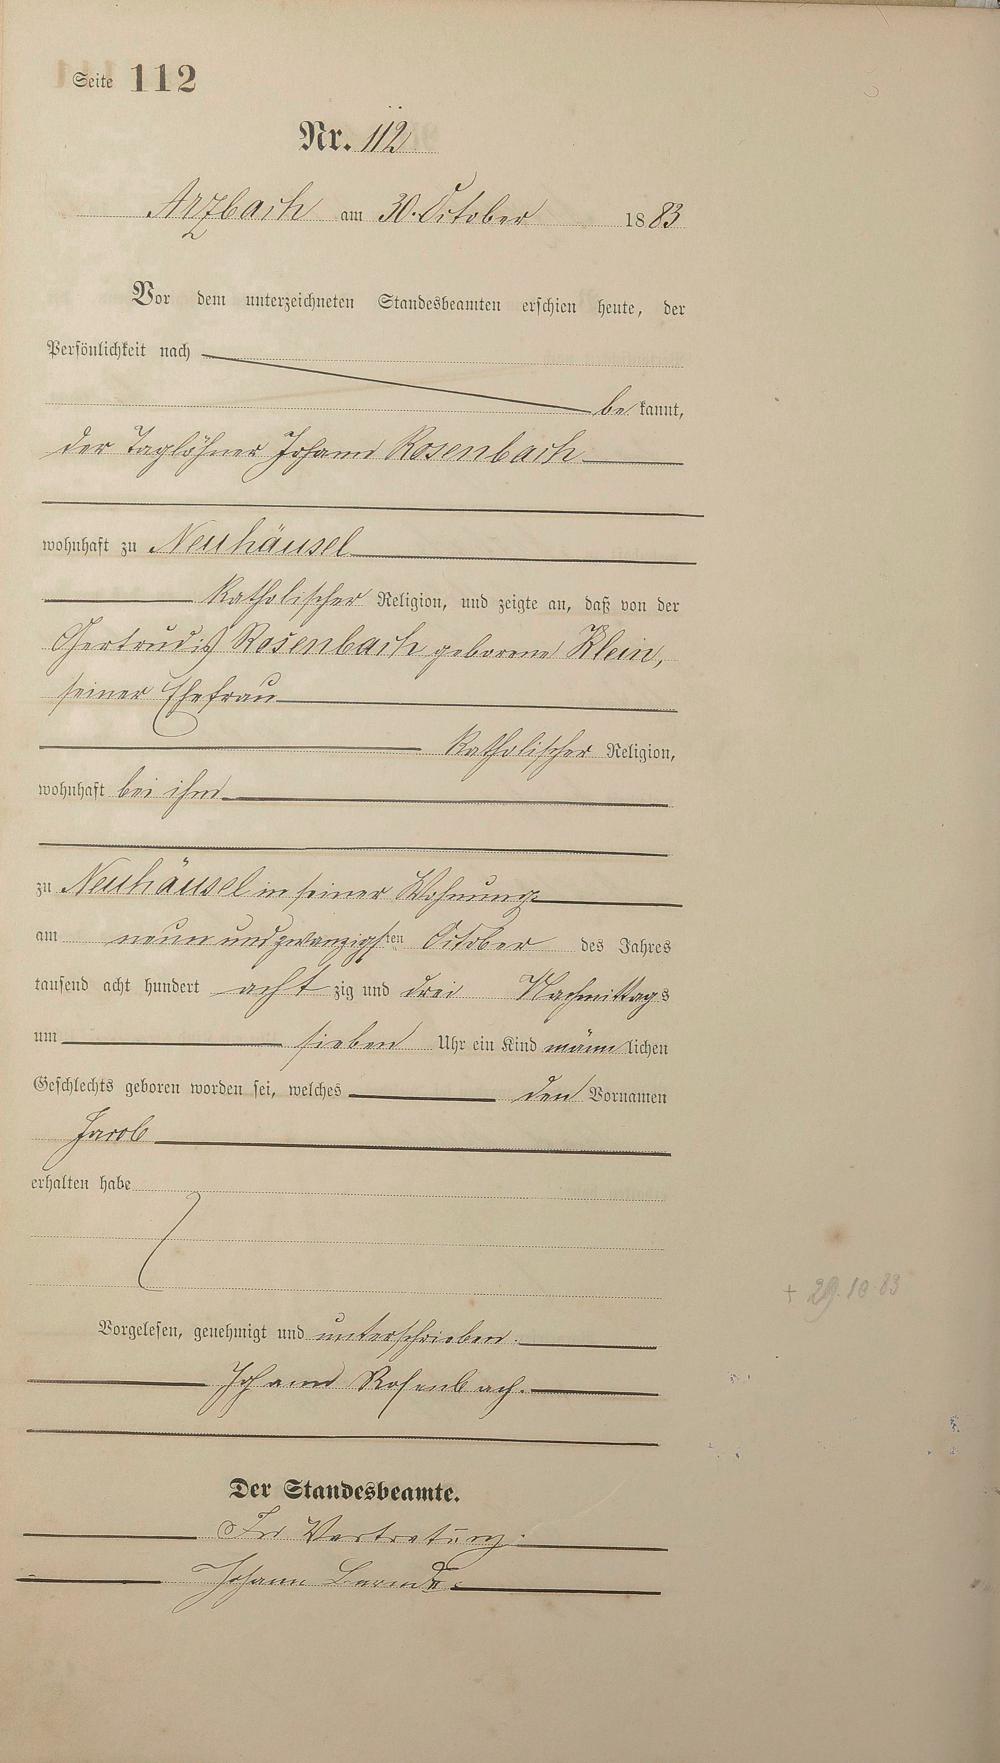 Seite 112
Nr. 112
Arzbach am 30. October 1883
Vor dem unterzeichneten Standesbeamten erschien heute, der
Persönlichkeit nach
bekannt,
der Taglöhner Johann Rosenbach
wohnhaft zu Neuhäusel
katholischer Religion, und zeigte an, daß von der
Gertrudis Rosenbach geborene Klein,
seiner Ehefrau
katholischer Religion,
wohnhaft bei ihm
zu Neuhäusel in seiner Wohnung
am neun und zwanzigsten October des Jahres
tausend acht hundert achtzig und drei Nachmittags
um sieben Uhr ein Kind männlichen
Geschlechts geboren worden sei, welches den Vornamen
Jacob
erhalten habe
+ 29.10.83
Vorgelesen, genehmigt und unterschrieben.
Johann Rosenbach.
Der Standesbeamte.
In Vertretung.
Johann